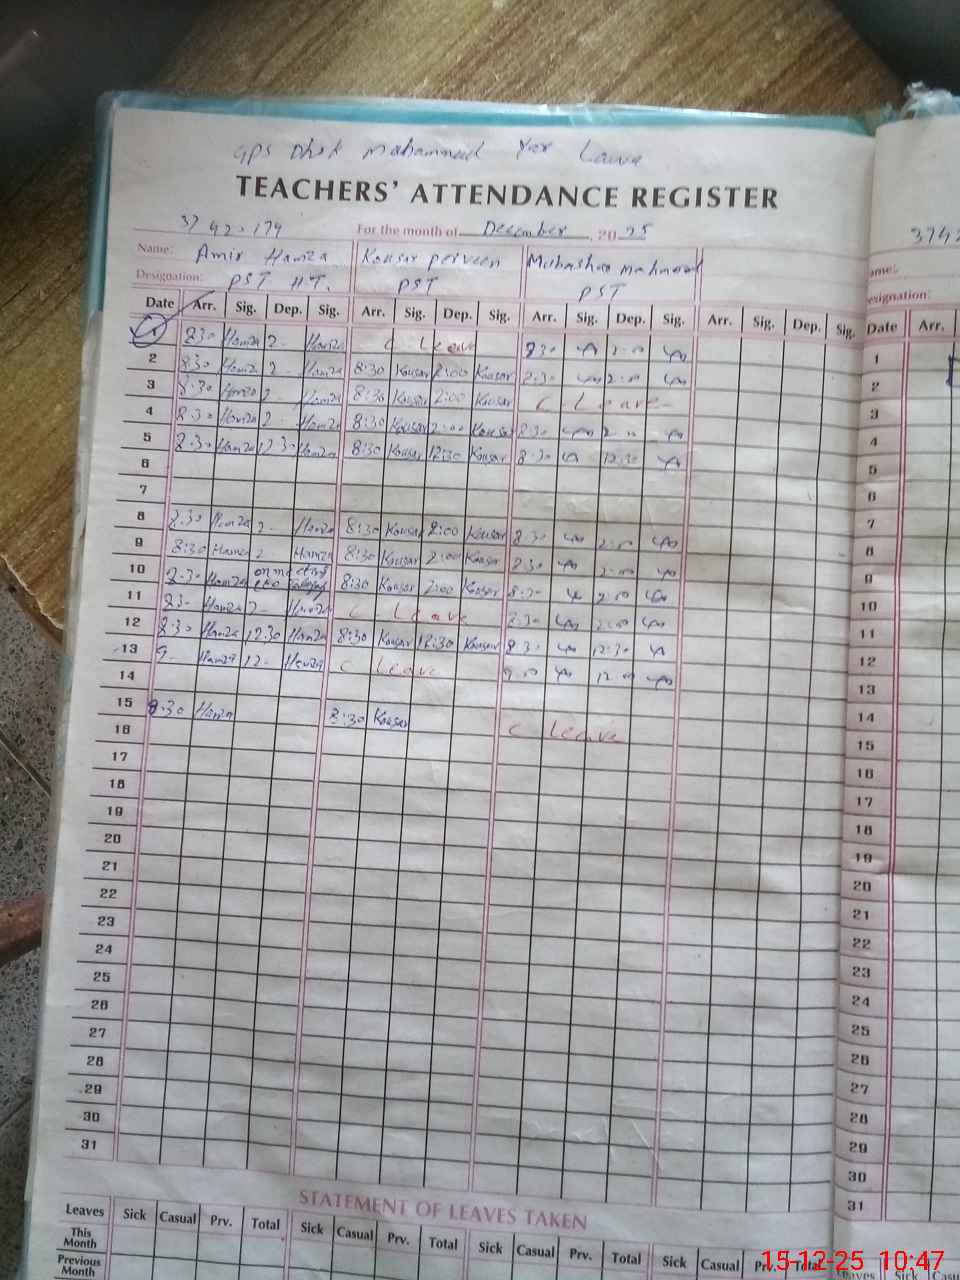 GPS Dhok Mohammad Yar Lawa
TEACHERS' ATTENDANCE REGISTER
For the month of December, 2025
Name: Amir Hamza Kousar perveen Mubashar mahmood
Designation: PST H.T. PST PST
Date Arr. Sig. Dep. Sig. Arr. Sig. Dep. Sig. Arr. Sig. Dep. Sig. Arr. Sig. Dep. Sig. Date Arr.
8:30 Hamza 2- Hamza C Leave 8:30 2:00 1
2 8:30 Hamza 2- Hamza 8:30 Kousar 2:00 Kousar 8:30 2:00 2
3 8:30 Hamza 2- Hamza 8:30 Kousar 2:00 Kousar C Leave 3
4 8:30 Hamza 2- Hamza 8:30 Kousar 2:00 Kousar 8:30 2:00 4
5 8:30 Hamza 12:30 Hamza 8:30 Kousar 12:30 Kousar 8:30 12:30 5
6 6
7 7
8 8:30 Hamza 2- Hamza 8:30 Kousar 2:00 Kousar 8:30 2:00 8
9 8:30 Hamza 2 Hamza 8:30 Kousar 2:00 Kousar 8:30 2:00 9
10 8:30 Hamza on meeting 8:30 Kousar 2:00 Kousar 8:30 2:00 10
11 8:30 Hamza 2- Hamza C Leave 8:30 2:00 11
12 8:30 Hamza 12:30 Hamza 8:30 Kousar 12:30 Kousar 8:30 12:30 12
13 9- Hamza 12- Hamza C Leave 9:00 12:00 13
14 14
15 8:30 Hamza 8:30 Kousar C Leave 15
16 16
17 17
18 18
19 19
20 20
21 21
22 22
23 23
24 24
25 25
26 26
27 27
28 28
29 29
30 30
31 31
STATEMENT OF LEAVES TAKEN
Leaves Sick Casual Prv. Total Sick Casual Prv. Total Sick Casual Prv. Total Sick Casual Prv. Total
This Month
Previous Month
15-12-25 10:47